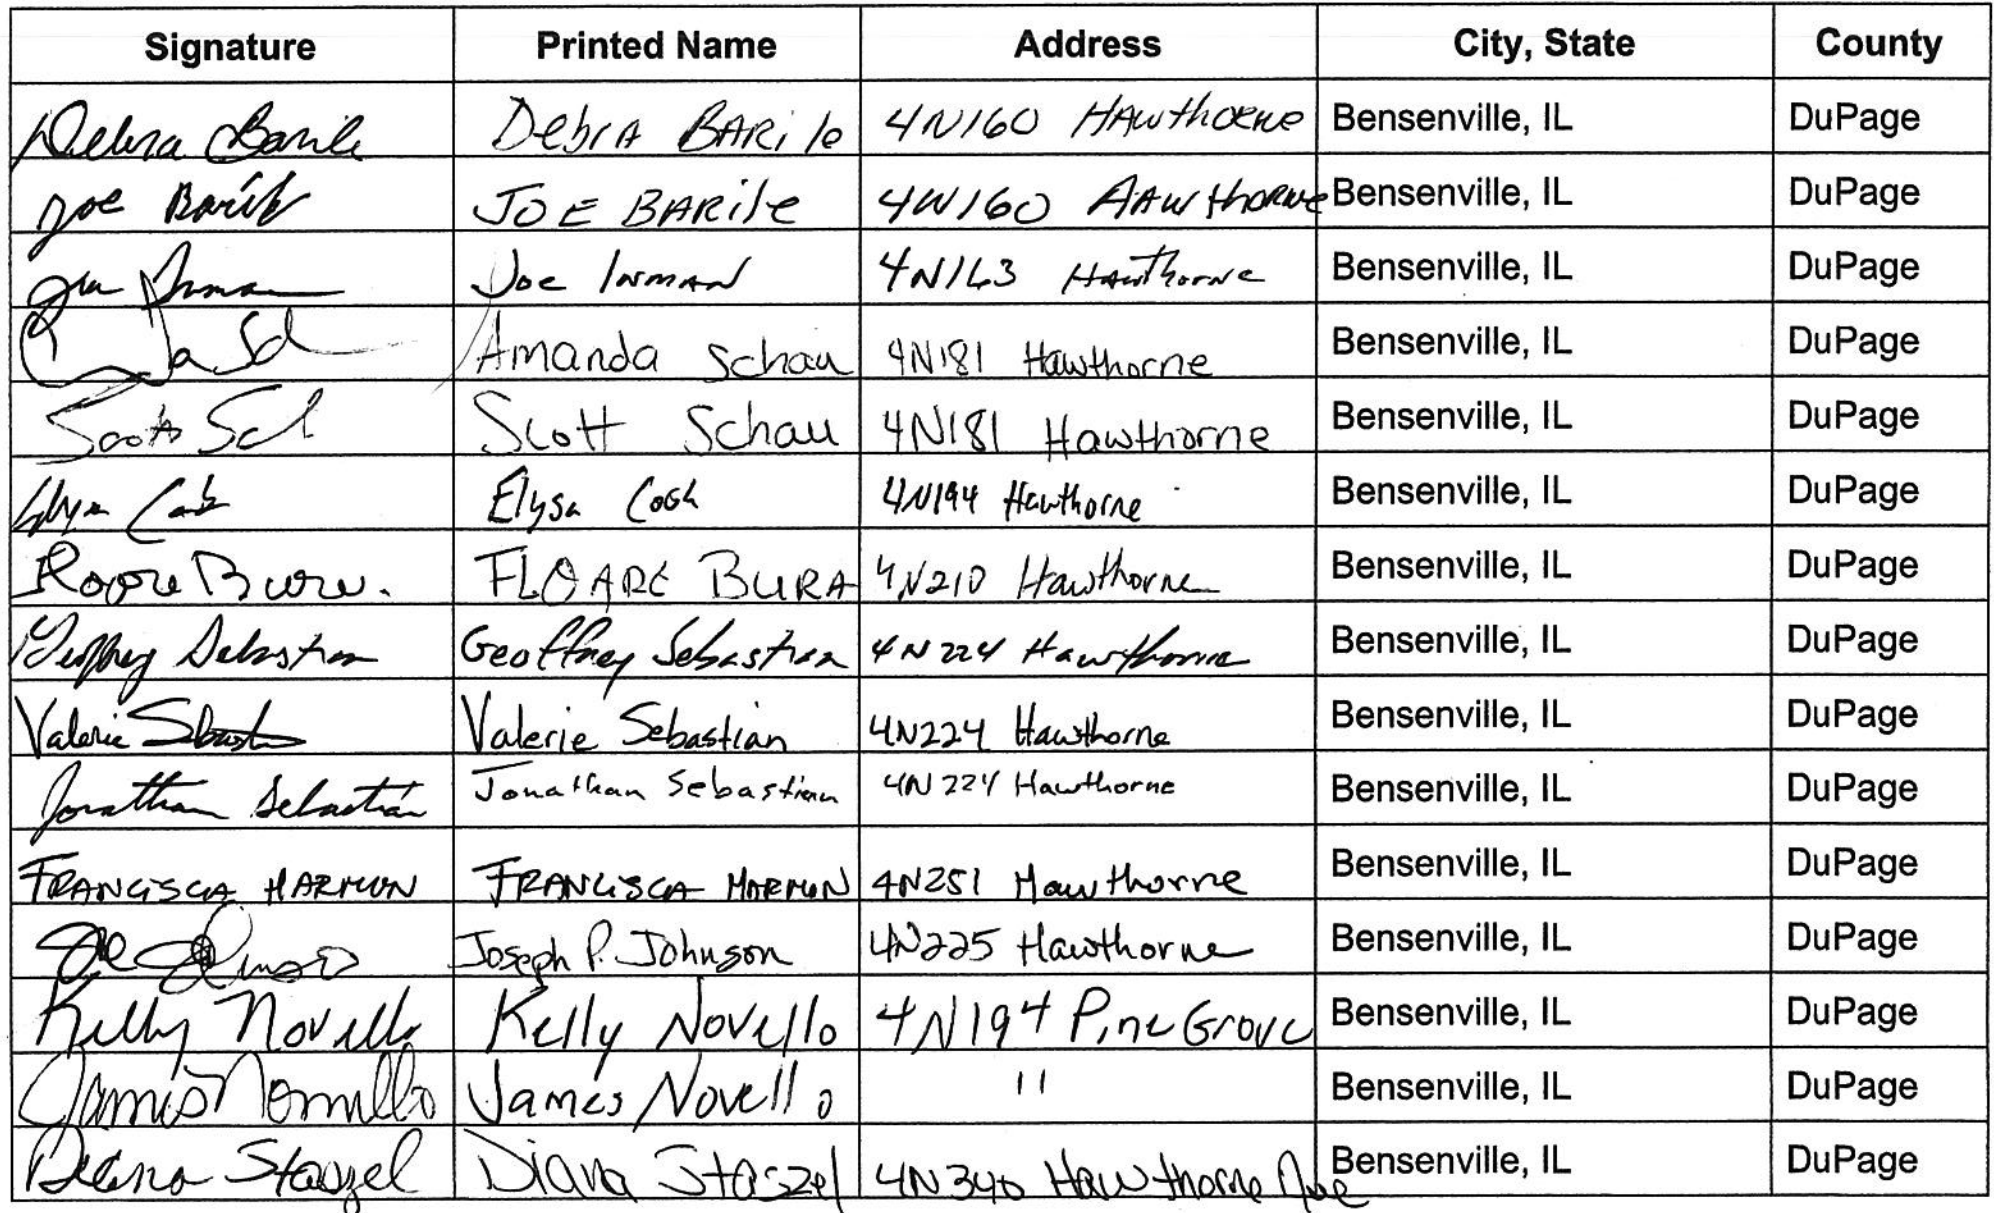 Signature Printed Name Address City, State County
Debra Barile DebrA BARile 4N160 HAwthorne Bensenville, IL DuPage
Joe Barile JOE BARile 4W160 HAwthorne Bensenville, IL DuPage
Joe Inman Joe INMAN 4N163 HawThorne Bensenville, IL DuPage
Amanda Schau 4N181 Hawthorne Bensenville, IL DuPage
Scott Sch Scott Schau 4N181 Hawthorne Bensenville, IL DuPage
Elysa Cook Elysa Cook 4N194 Hawthorne Bensenville, IL DuPage
FLOARE BURA 4N210 Hawthorne Bensenville, IL DuPage
Geoffrey Sebastian Geoffrey Sebastian 4N224 Hawthorne Bensenville, IL DuPage
Valerie Sebastian Valerie Sebastian 4N224 Hawthorne Bensenville, IL DuPage
Jonathan Sebastian Jonathan Sebastian 4N224 Hawthorne Bensenville, IL DuPage
FRANCISCA HARMON FRANCISCA HARMON 4N251 Hawthorne Bensenville, IL DuPage
Joe Johnson Joseph P. Johnson 4N225 Hawthorne Bensenville, IL DuPage
Kelly Novello Kelly Novello 4N194 Pine Grove Bensenville, IL DuPage
James Novello James Novello " Bensenville, IL DuPage
Diana Staszel Diana Staszel 4N340 Hawthorne Ave Bensenville, IL DuPage